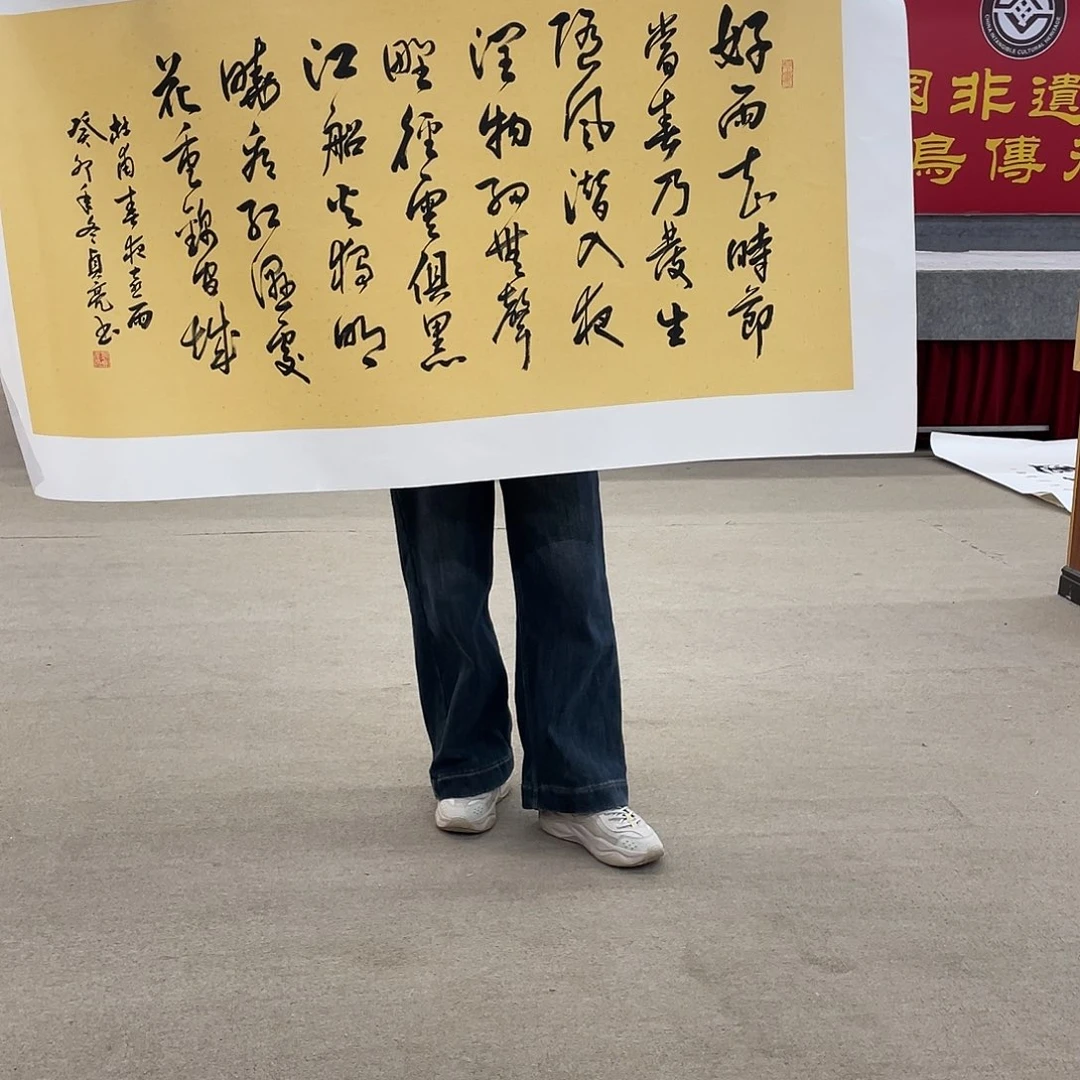 好雨知時節
當春乃發生
随風潛入夜
潤物細無聲
野徑雲俱黑
江船火獨明
曉看紅濕處
花重錦官城
杜甫春夜喜雨
癸卯年冬貞亮書
CHINA INTANGIBLE CULTURAL HERITAGE
國非遺
鳥傳